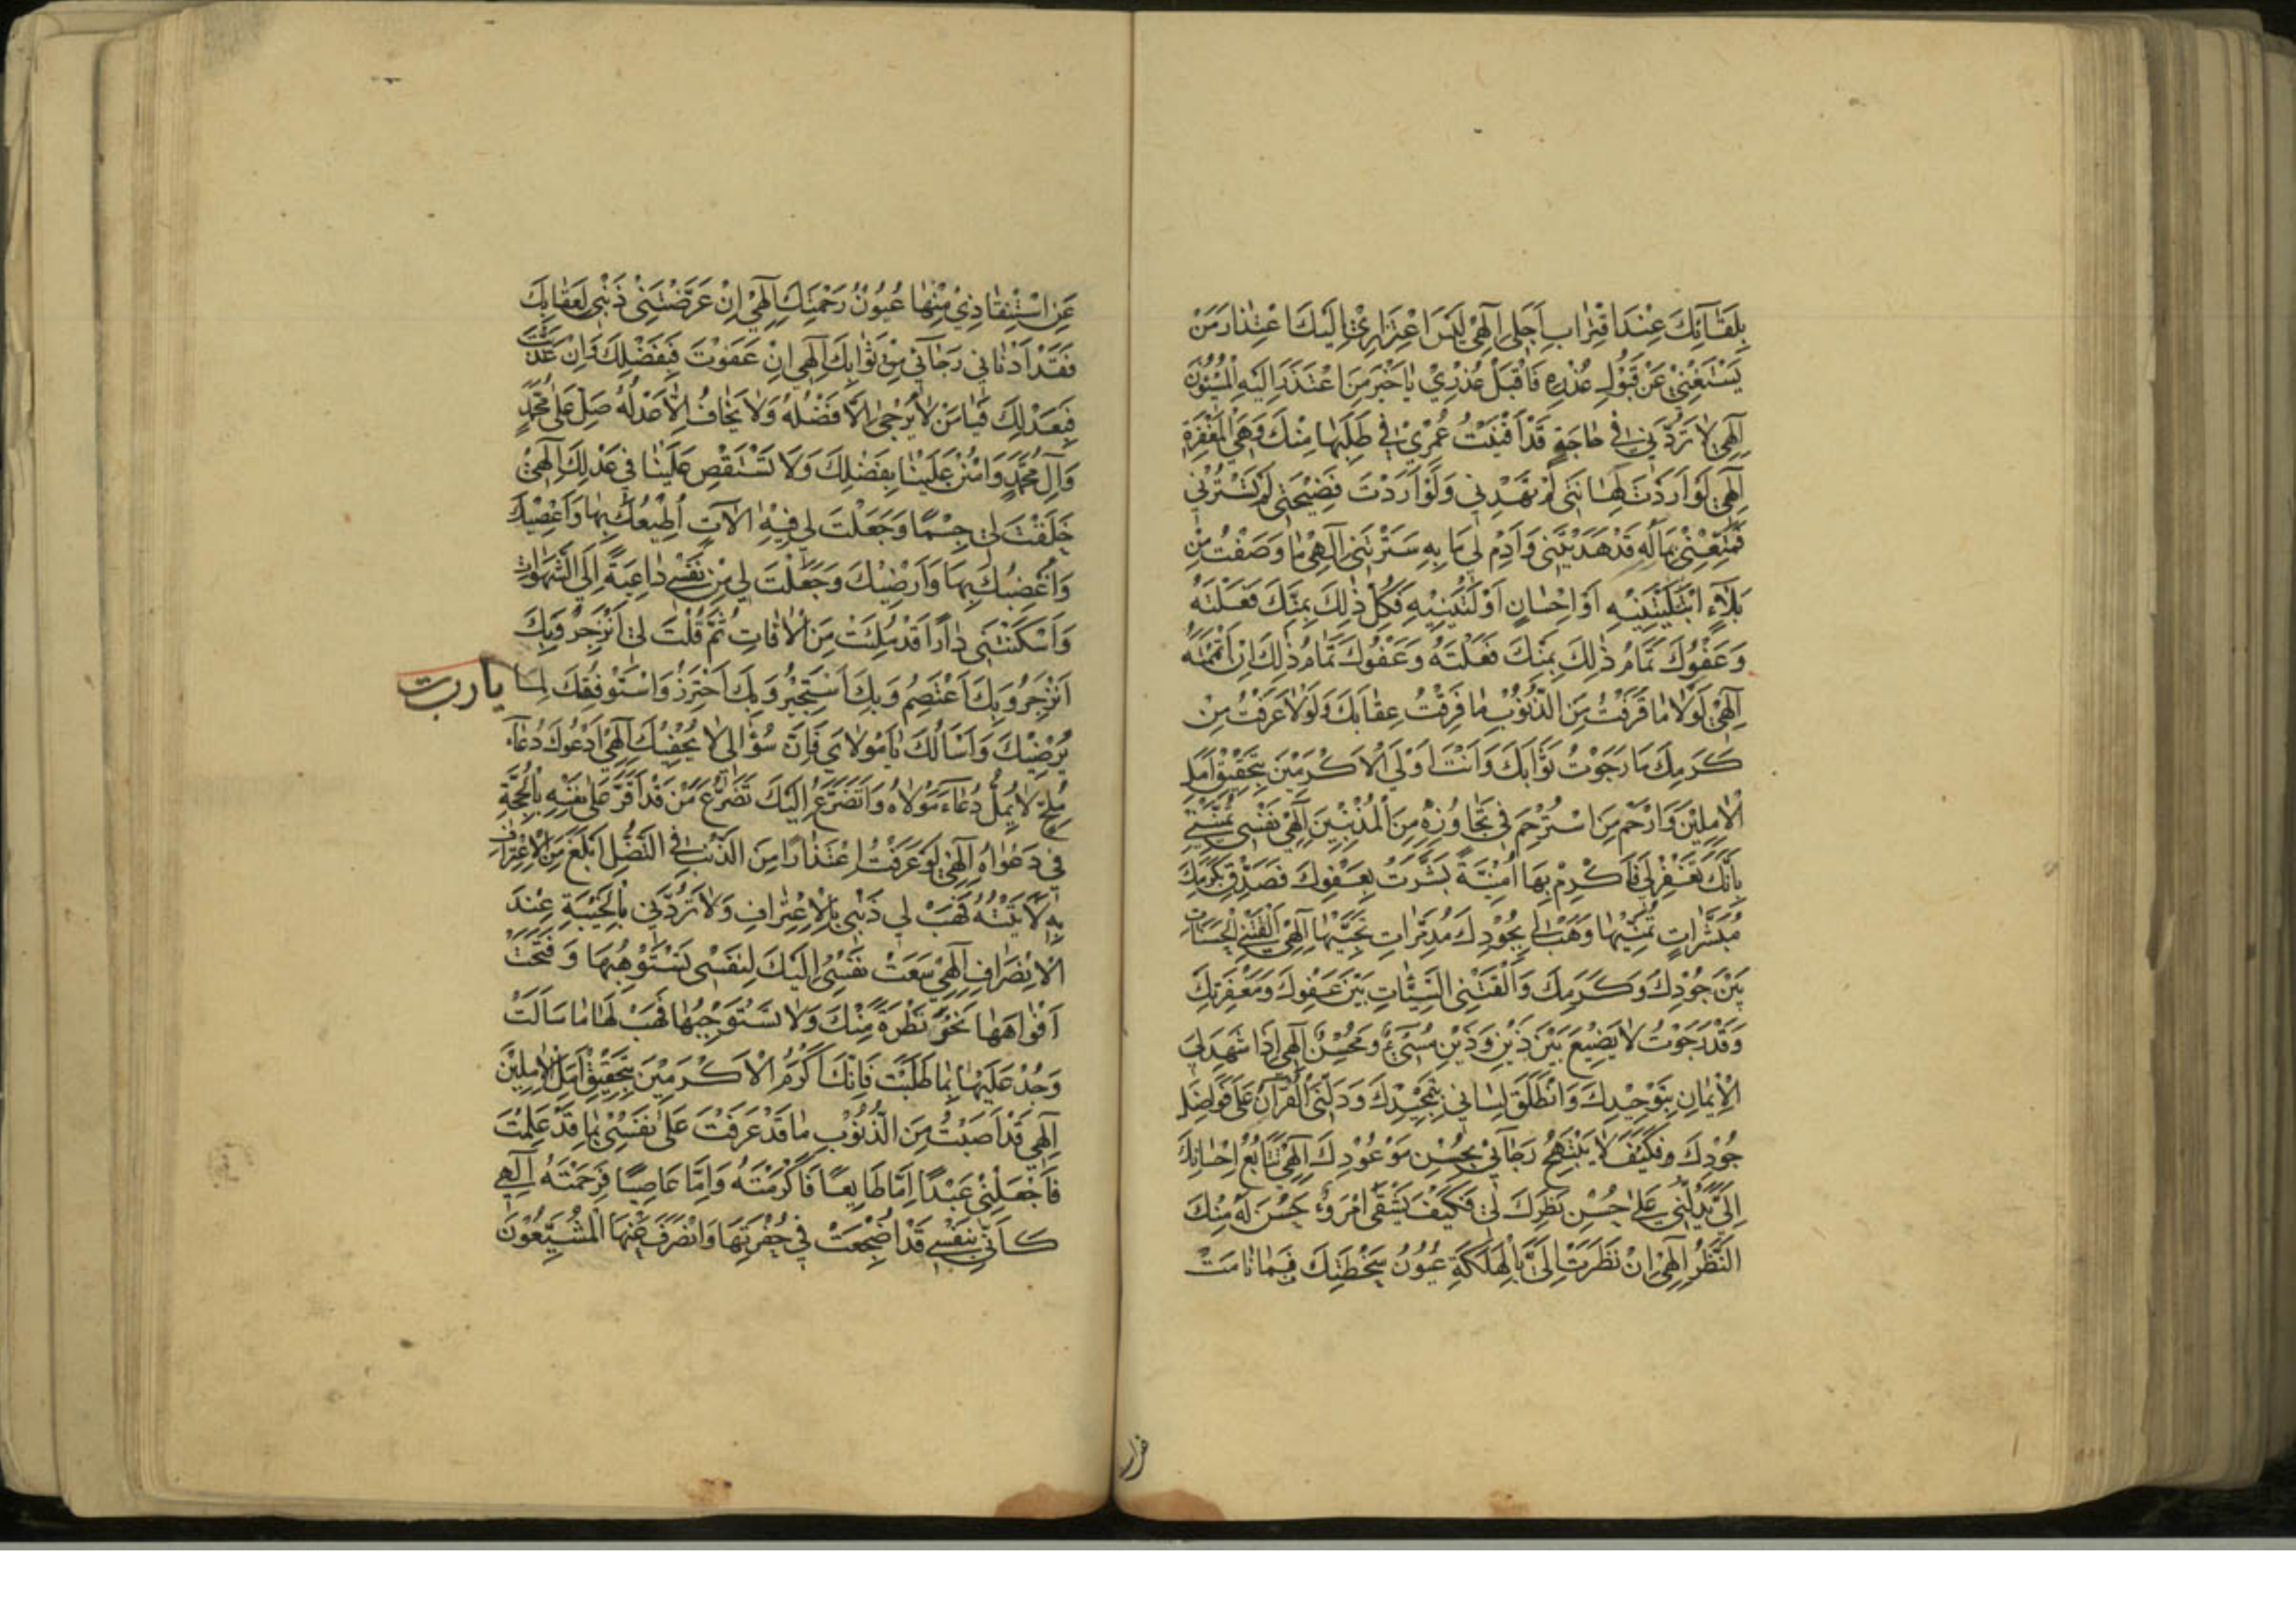 بِلِقَآئِكَ عِنْدَ اقْتِرَابِ اَجَلِي اِلٰهِي لَيْسَ اعْتِذَارِي اِلَيْكَ اعْتِذَارَ مَنْ
يَسْتَغْنِي عَنْ قَبُولِ عُذْرِهِ فَاقْبَلْ عُذْرِي يَا خَيْرَ مَنِ اعْتَذَرَ اِلَيْهِ الْمُسِيئُونَ
اِلٰهِي لَا تَرُدَّنِي فِي حَاجَةٍ قَدْ اَفْنَيْتُ عُمْرِي فِي طَلَبِهَا مِنْكَ وَهِيَ الْمَغْفِرَةُ
اِلٰهِي لَوْ اَرَدْتَ اِهَانَتِي لَمْ تَهْدِنِي وَلَوْ اَرَدْتَ فَضِيحَتِي لَمْ تَسْتُرْنِي
فَمَتِّعْنِي بِمَا لَهُ قَدْ هَدَيْتَنِي وَاَدِمْ لِي مَا بِهِ سَتَرْتَنِي اِلٰهِي مَا وَصَفْتُ مِنْ
بَلَآءٍ ابْتَلَيْتَنِيهِ اَوْ اِحْسَانٍ اَوْلَيْتَنِيهِ فَكُلُّ ذٰلِكَ بِمَنِّكَ فَعَلْتَهُ
وَعَفْوُكَ تَمَامُ ذٰلِكَ بِمَنِّكَ فَعَلْتَهُ وَعَفْوُكَ تَمَامُ ذٰلِكَ اِنْ اَتْمَمْتَهُ
اِلٰهِي لَوْلَا مَا قَرَفْتُ مِنَ الذُّنُوبِ مَا فَرِقْتُ عِقَابَكَ وَلَوْلَا عَرَفْتُ مِنْ
كَرَمِكَ مَا رَجَوْتُ ثَوَابَكَ وَاَنْتَ اَوْلَى الْاَكْرَمِينَ بِتَحْقِيقِ اَمَلِ
الْاٰمِلِينَ وَاَرْحَمُ مَنِ اسْتُرْحِمَ فِي تَجَاوُزِهِ مِنَ الْمُذْنِبِينَ اِلٰهِي نَفْسِي تُمَنِّينِي
بِاَنَّكَ تَغْفِرُ لِي فَاَكْرِمْ بِهَا اُمْنِيَّةً بَشَّرَتْ بِعَفْوِكَ فَصَدِّقْ بِكَرَمِكَ
مُبَشِّرَاتِ تَمَنِّيهَا وَهَبْ لِي بِجُودِكَ مُدَمِّرَاتِ تَجَنِّيهَا اِلٰهِي اَلْقَتْنِي الْحَسَنَاتُ
بَيْنَ جُودِكَ وَكَرَمِكَ وَاَلْقَتْنِي السَّيِّئَاتُ بَيْنَ عَفْوِكَ وَمَغْفِرَتِكَ
وَقَدْ رَجَوْتُ لَا يَضِيعَ بَيْنَ ذَيْنِ وَذَيْنِ مُسِيٓءٌ وَمُحْسِنٌ اِلٰهِي اِذَا شَهِدَ لِيَ
الْاِيْمَانُ بِتَوْحِيدِكَ وَانْطَلَقَ لِسَانِي بِتَمْجِيدِكَ وَدَلَّنِي الْقُرْاٰنُ عَلٰى فَوَاضِلِ
جُودِكَ وَفَكَيْفَ لَا يَبْتَهِجُ رَجَآئِي بِحُسْنِ مَوْعُودِكَ اِلٰهِي تَتَابُعُ اِحْسَانِكَ
اِلَيَّ يَدُلُّنِي عَلٰى حُسْنِ نَظَرِكَ لِي فَكَيْفَ يَشْقَى امْرَؤٌ حَسُنَ لَهُ مِنْكَ
النَّظَرُ اِلٰهِي اِنْ نَظَرَتْ اِلَيَّ بِالْهَلَكَةِ عُيُونُ سَخْطَتِكَ فَمَا نَامَتْ
عَنِ اسْتِنْقَاذِي مِنْهَا عُيُونُ رَحْمَتِكَ اِلٰهِي اِنْ عَرَّضَنِي ذَنْبِي لِعِقَابِكَ
فَقَدْ اَدْنَانِي رَجَآئِي مِنْ ثَوَابِكَ اِلٰهِي اِنْ عَفَوْتَ فَبِفَضْلِكَ وَاِنْ عَذَّبْتَ
فَبِعَدْلِكَ فَيَا مَنْ لَا يُرْجٰى اِلَّا فَضْلُهُ وَلَا يُخَافُ اِلَّا عَدْلُهُ صَلِّ عَلٰى مُحَمَّدٍ
وَاٰلِ مُحَمَّدٍ وَامْنُنْ عَلَيْنَا بِفَضْلِكَ وَلَا تَسْتَقْصِ عَلَيْنَا فِي عَدْلِكَ اِلٰهِي
خَلَقْتَ لِي جِسْمًا وَجَعَلْتَ لِي فِيهِ اٰلَاتٍ اُطِيعُكَ بِهَا وَاَعْصِيكَ
وَاُغْضِبُكَ بِهَا وَاُرْضِيكَ وَجَعَلْتَ لِي مِنْ نَفْسِي دَاعِيَةً اِلَى الشَّهَوَاتِ
وَاَسْكَنْتَنِي دَارًا قَدْ مُلِئَتْ مِنَ الْاٰفَاتِ ثُمَّ قُلْتَ لِي انْزَجِرْ وَبِكَ
اَنْزَجِرُ وَبِكَ اَعْتَصِمُ وَبِكَ اَسْتَجِيرُ وَبِكَ اَحْتَرِزُ وَاَسْتَوْفِقُكَ لِمَا يا رب
يُرْضِيكَ وَاَسْاَلُكَ يَا مَوْلَايَ فَاِنَّ سُؤَالِي لَا يُحْفِيكَ اِلٰهِي اَدْعُوكَ دُعَآءَ
مُلِحٍّ لَا يَمَلُّ دُعَآءَ مَوْلَاهُ وَاَتَضَرَّعُ اِلَيْكَ تَضَرُّعَ مَنْ قَدْ اَقَرَّ عَلٰى نَفْسِهِ بِالْحُجَّةِ
فِي دَعْوَاهُ اِلٰهِي لَوْ عَرَفْتُ اعْتِذَارًا مِنَ الذَّنْبِ فِي التَّنَصُّلِ اَبْلَغَ مِنَ الْاِعْتِرَافِ
بِهِ لَاَتَيْتُهُ فَهَبْ لِي ذَنْبِي بِالْاِعْتِرَافِ وَلَا تَرُدَّنِي بِالْخَيْبَةِ عِنْدَ
الْاِنْصِرَافِ اِلٰهِي سَعَتْ نَفْسِي اِلَيْكَ لِنَفْسِي تَسْتَوْهِبُهَا وَفَتَحَتْ
اَفْوَاهَهَا نَحْوَ نَظْرَةٍ مِنْكَ وَلَا تَسْتَوْجِبُهَا فَهَبْ لَهَا مَا سَاَلَتْ
وَجُدْ عَلَيْهَا بِمَا طَلَبَتْ فَاِنَّكَ اَكْرَمُ الْاَكْرَمِينَ بِتَحْقِيقِ اَمَلِ الْاٰمِلِينَ
اِلٰهِي قَدْ اَصَبْتُ مِنَ الذُّنُوبِ مَا قَدْ عَرَفْتَ عَلٰى نَفْسِي بِمَا قَدْ عَلِمْتَ
فَاجْعَلْنِي عَبْدًا اِمَّا طَايِعًا فَاَكْرَمْتَهُ وَاِمَّا عَاصِيًا فَرَحِمْتَهُ اِلٰهِي
كَاَنِّي بِنَفْسِي قَدْ اُضْجِعَتْ فِي حُفْرَتِهَا وَانْصَرَفَ عَنْهَا الْمُشَيِّعُونَ